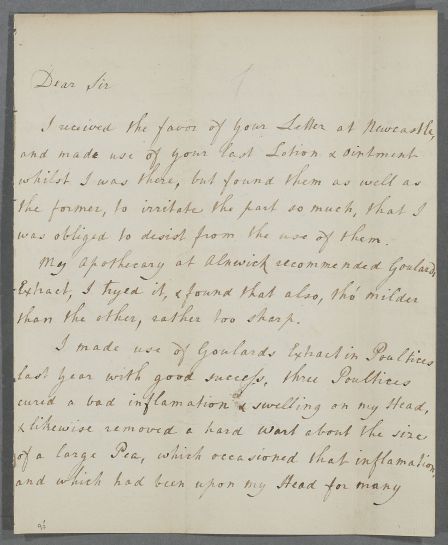 Dear Sir
I received the favor of your Letter at Newcastle,
and made use of your last Lotion & Ointment
whilst I was there, but found them as well as
the former, to irritate the part so much, that I
was obliged to desist from the use of them.
My Apothecary at Alnwick recommended Goulards
Extract, I tryed it, & found that also, tho' milder
than the other, rather too sharp.
I made use of Goulards Extract in Poultices
last year with good success, three Poultices
cured a bad inflamation & swelling on my Head,
& likewise removed a hard Wart about the size
of a large Pea, which occasioned that inflamation,
and which had been upon my Head for many